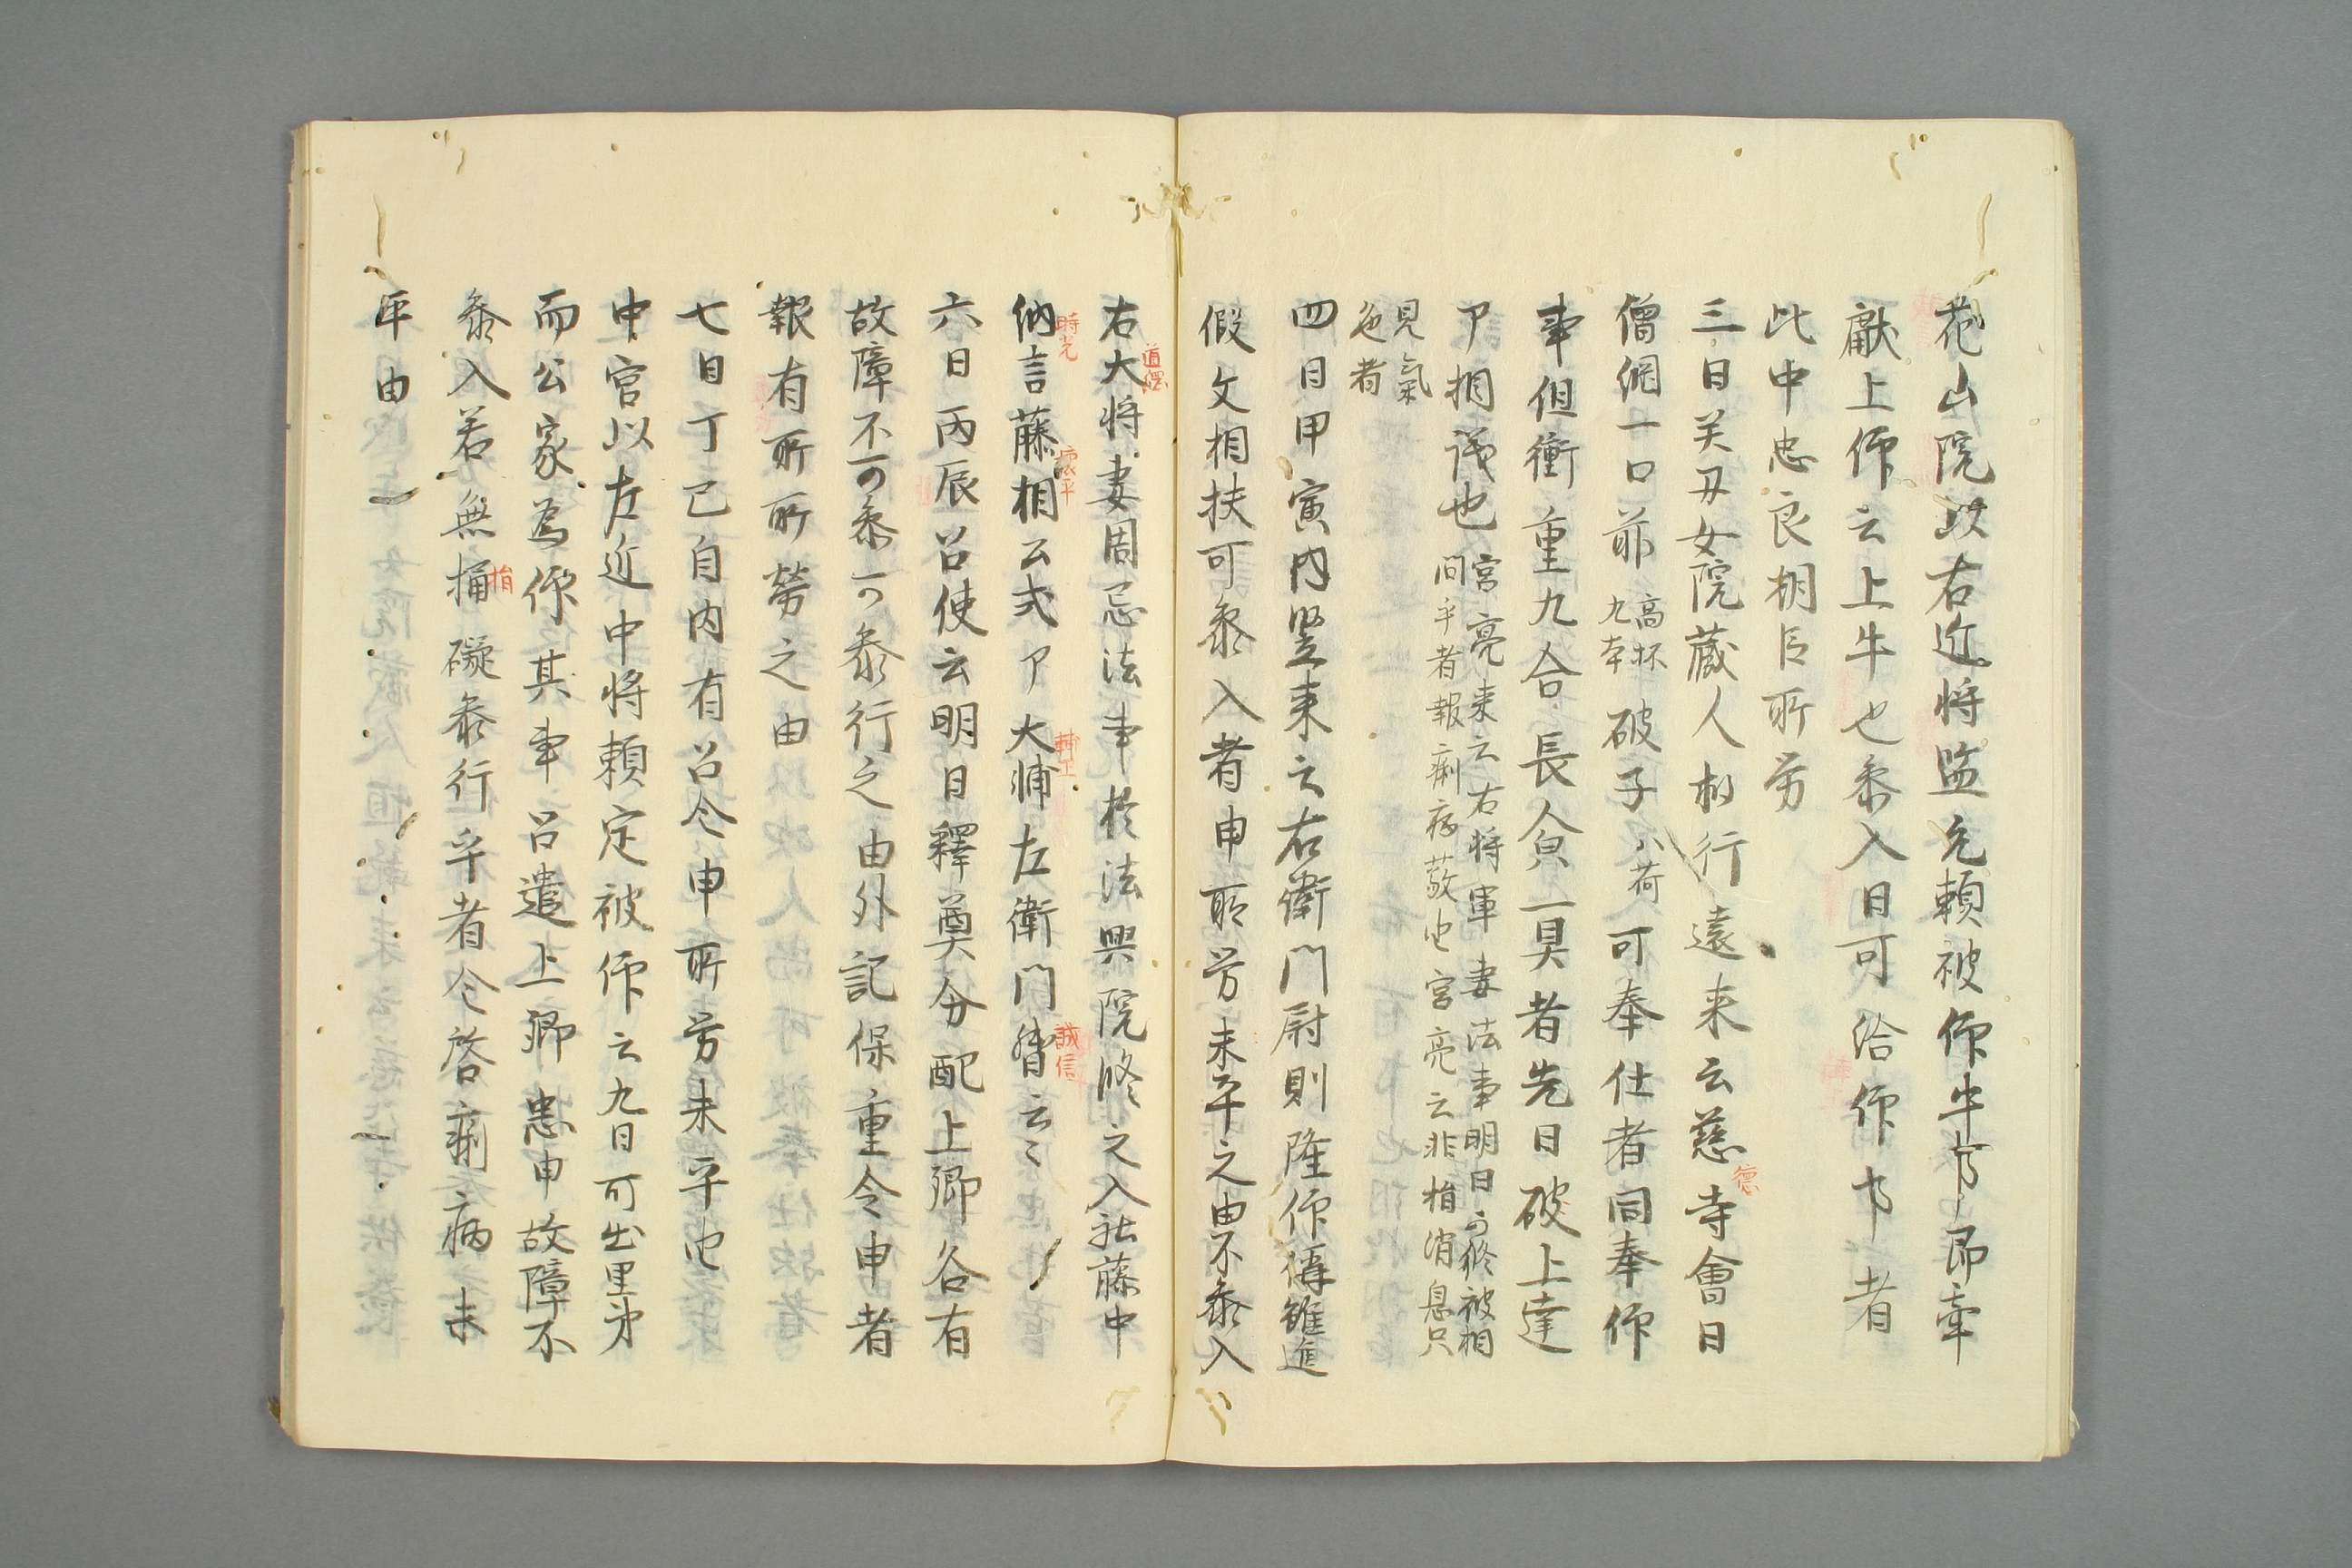 花山院以右近将监允頼被仰牛事即牽
献上仰云上牛也参入日可給仰事者
此中忠良朝臣所労
三日癸丑女院蔵人相行遠来云慈寺會日
徳
僧綱一口前高坏九本破子八荷可奉仕者同奉仰
事但衝重九合長食一具者先日破上達
了相議也宮亮来云右将軍妻法事明日可修被相
問乎者報痢存敬也宮亮云非指消息只
見氣
色者
四日甲寅内竪来云右衛門尉則隆仰偁雖進
假文相扶可参入者申所労未平之由不参入
右大将妻周忌法事於法興院修之入礼藤中
道綱
納言藤相公弍了大浦左衛門督云々
時光
懐平
輔正
誠信
六日丙辰召使云明日釋奠分配上卿各有
故障不可参可参行之由外記保重令申者
報有所所勞之由
七日丁巳自内有召令申所労未平也
中宮以左近中将頼定被仰云九日可出里第
而公家為仰其事召遣上卿悉申故障不
参入若無捅礙参行乎者令啓痢病未
指
平由